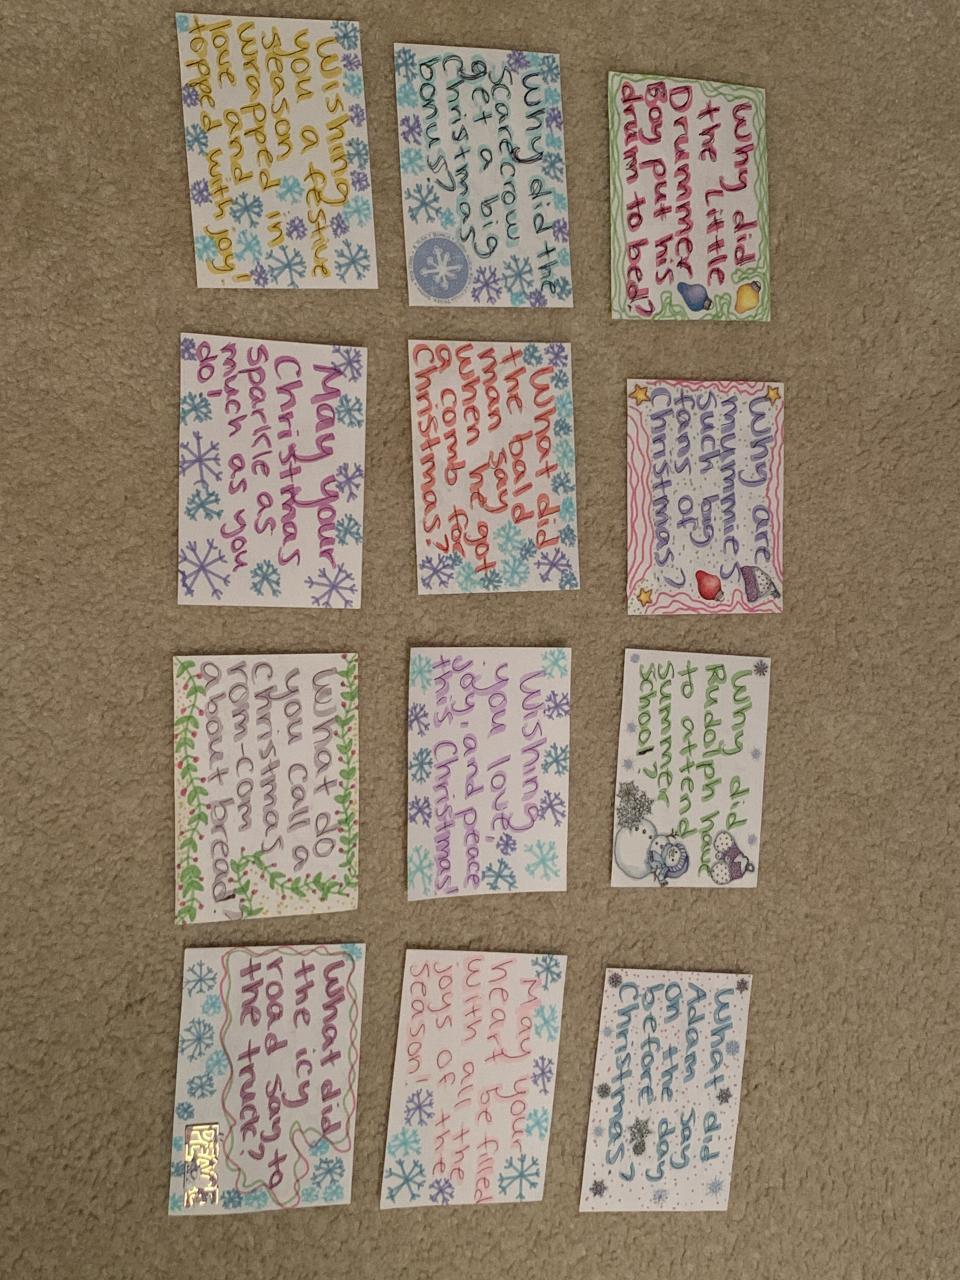 Why did
the Little
Drummer
Boy put his
drum to bed?
Why are
mummies
such big
fans of
Christmas?
Why did
Rudolph have
to attend
summer
school?
What did
Adam say
on the day
before
Christmas?
Why did the
scarecrow
get a big
Christmas
bonus?
What did
the bald
man say
when he got
a comb for
Christmas?
Wishing
you love,
joy, and peace
this Christmas!
May your
heart be filled
with all the
joys of the
season!
Wishing
you a festive
season
wrapped in
love and
topped with joy!
May your
Christmas
sparkle as
much as you
do!
What do
you call a
Christmas
rom-com
about bread?
What did
the icy
road say to
the truck?
PEACE